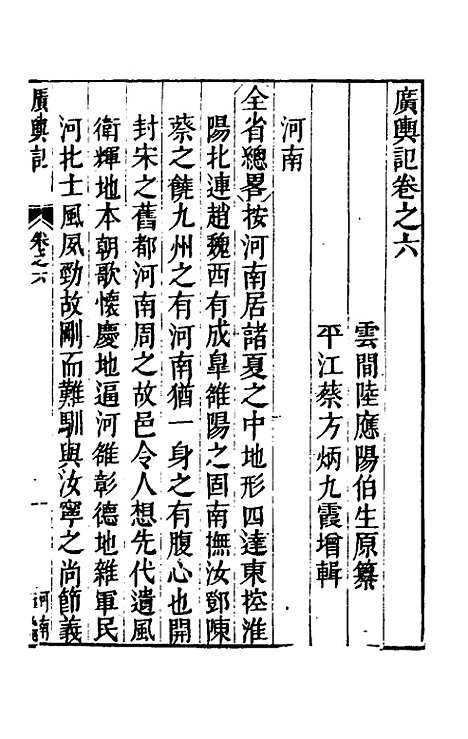 廣輿記卷之六
雲間陸應陽伯生原纂
平江蔡方炳九霞增輯
河南
全省總畧按河南居諸夏之中地形四達東控淮
陽北連趙魏西有成皐雒陽之固南撫汝鄧陳
蔡之饒九州之有河南猶一身之有腹心也開
封宋之舊都河南周之故邑令人想先代遺風
衛輝地本朝歌懷慶地逼河雒彰德地雜軍民
河北士風夙勁故剛而難馴與汝寧之尚節義
廣輿記
卷之六
一
河南